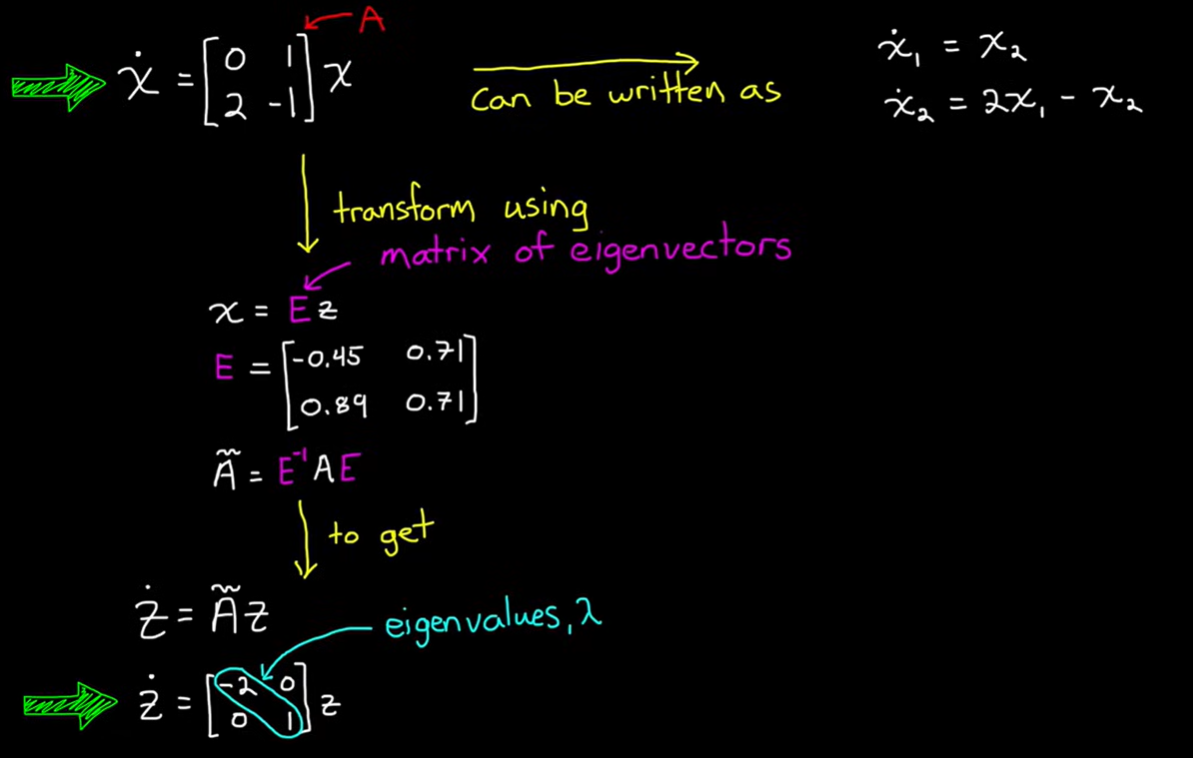 A
ẋ = [0 1; 2 -1] x
can be written as
ẋ₁ = x₂
ẋ₂ = 2x₁ - x₂
transform using
matrix of eigenvectors
x = E z
E = [-0.45 0.71; 0.89 0.71]
Ã = E⁻¹ A E
to get
ż = Ã z
eigenvalues, λ
ż = [-2 0; 0 1] z